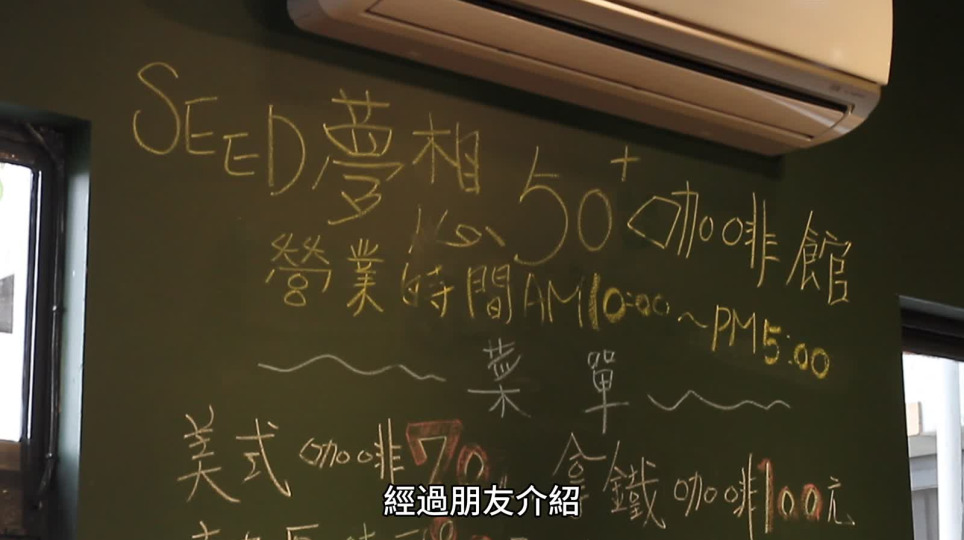 SEED夢想50+咖啡館
營業時間AM10:00~PM5:00
菜單
美式咖啡70
拿鐵咖啡100元
經過朋友介紹